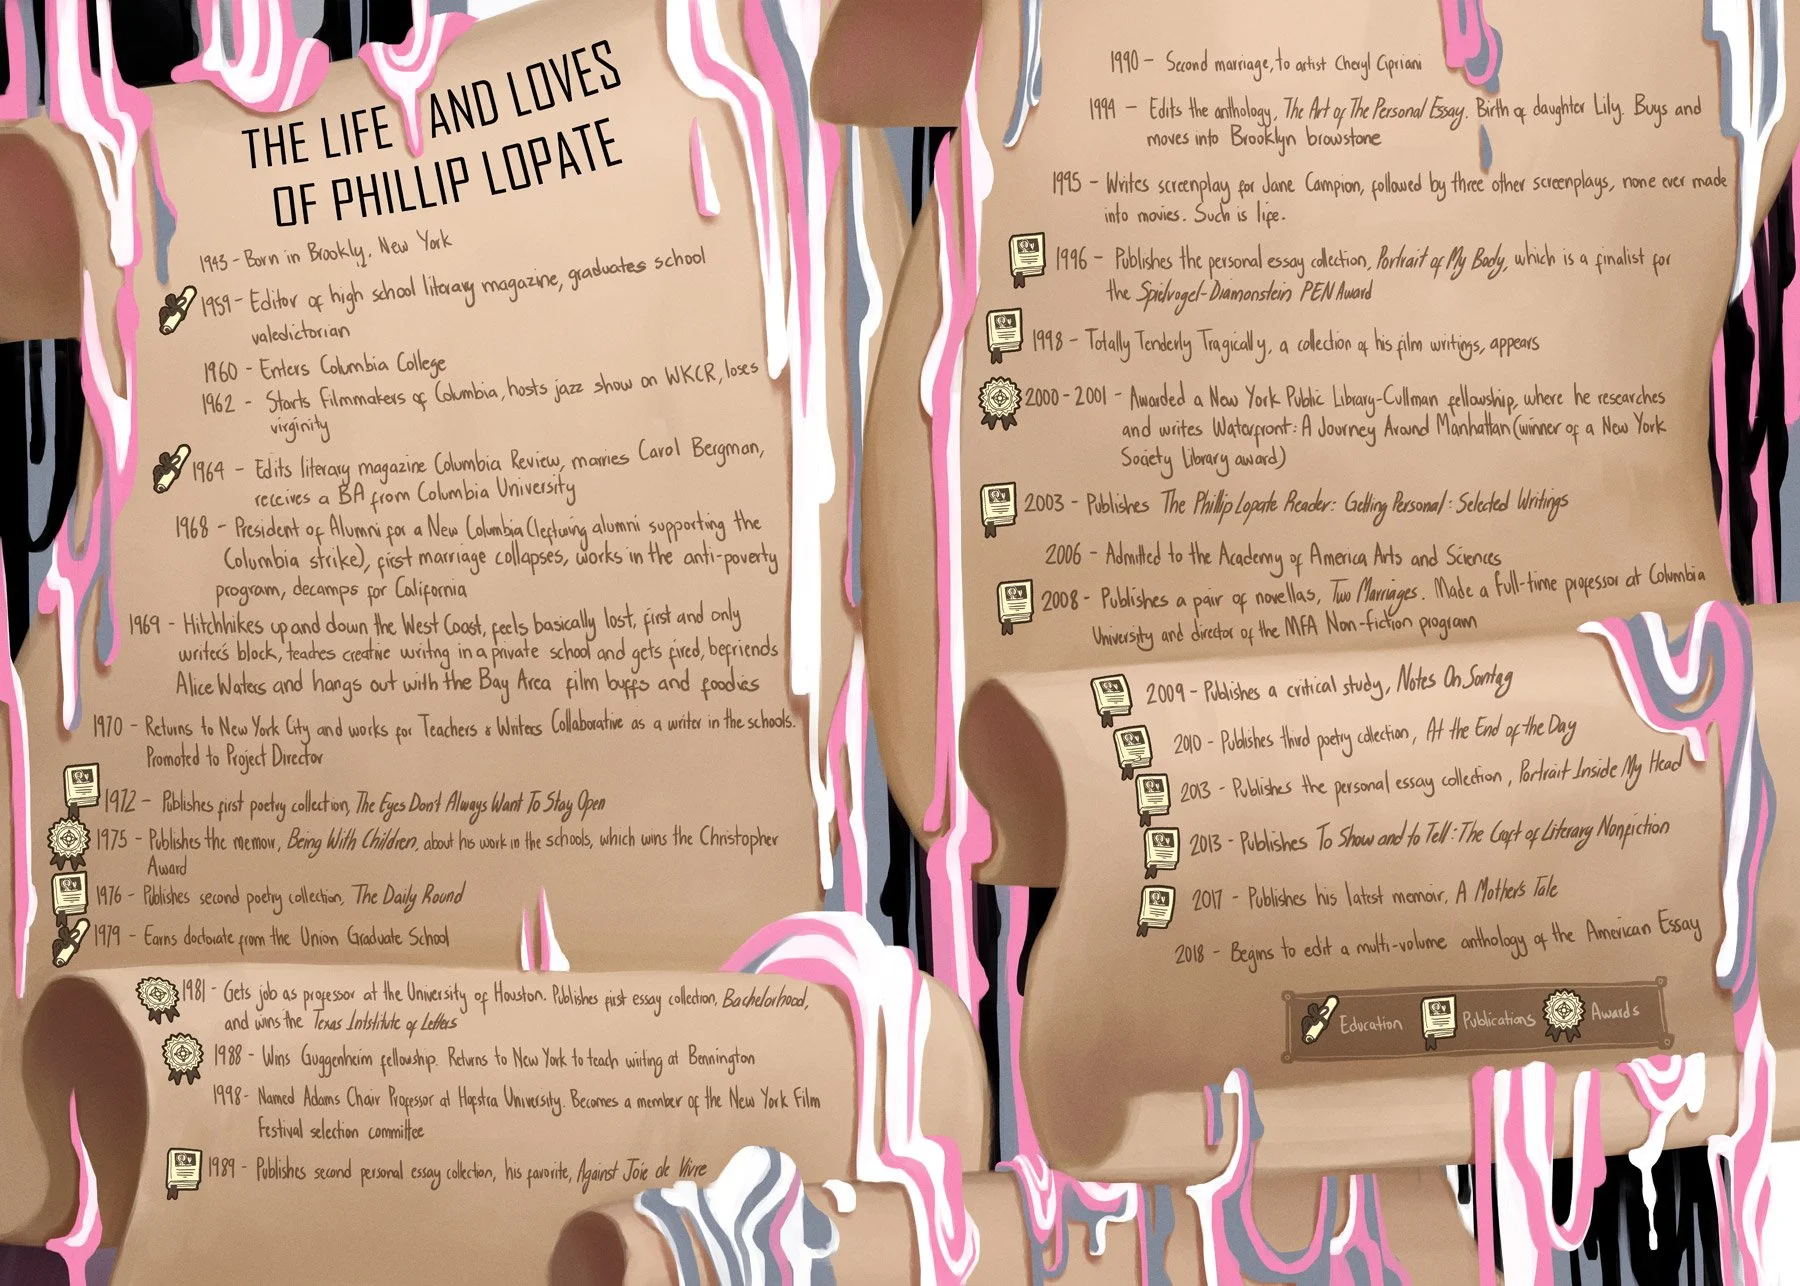 THE LIFE AND LOVES
OF PHILLIP LOPATE
1943 - Born in Brookly, New York
1959 - Editor of high school literary magazine, graduates school
valedictorian
1960 - Enters Columbia College
1962 - Starts Filmmakers of Columbia, hosts jazz show on WKCR, loses
virginity
1964 - Edits literary magazine Columbia Review, marries Carol Bergman,
receives a BA from Columbia University
1968 - President of Alumni for a New Columbia (leftwing alumni supporting the
Columbia strike), first marriage collapses, works in the anti-poverty
program, decamps for California
1969 - Hitchhikes up and down the West Coast, feels basically lost, first and only
writer's block, teaches creative writing in a private school and gets fired, befriends
Alice Waters and hangs out with the Bay Area film buffs and foodies
1970 - Returns to New York City and works for Teachers & Writers Collaborative as a writer in the schools.
Promoted to Project Director
1972 - Publishes first poetry collection, The Eyes Don't Always Want To Stay Open
1975 - Publishes the memoir, Being With Children, about his work in the schools, which wins the Christopher
Award
1976 - Publishes second poetry collection, The Daily Round
1979 - Earns doctorate from the Union Graduate School
1981 - Gets job as professor at the University of Houston. Publishes first essay collection, Bachelorhood,
and wins the Texas Intstitute of Letters
1988 - Wins Guggenheim fellowship. Returns to New York to teach writing at Bennington
1998 - Named Adams Chair Professor at Hofstra University. Becomes a member of the New York Film
Festival selection committee
1989 - Publishes second personal essay collection, his favorite, Against Joie de Vivre
1990 - Second marriage, to artist Cheryl Cipriani
1994 - Edits the anthology, The Art of The Personal Essay. Birth of daughter Lily. Buys and
moves into Brooklyn browstone
1995 - Writes screenplay for Jane Campion, followed by three other screenplays, none ever made
into movies. Such is life.
1996 - Publishes the personal essay collection, Portrait of My Body, which is a finalist for
the Spielvogel-Diamonstein PEN Award
1998 - Totally Tenderly Tragically, a collection of his film writings, appears
2000 - 2001 - Awarded a New York Public Library-Cullman fellowship, where he researches
and writes Waterfront: A Journey Around Manhattan (winner of a New York
Society Library award)
2003 - Publishes The Phillip Lopate Reader: Getting Personal: Selected Writings
2006 - Admitted to the Academy of America Arts and Sciences
2008 - Publishes a pair of novellas, Two Marriages. Made a full-time professor at Columbia
University and director of the MFA Non-fiction program
2009 - Publishes a critical study, Notes On Sontag
2010 - Publishes third poetry collection, At the End of the Day
2013 - Publishes the personal essay collection, Portrait Inside My Head
2013 - Publishes To Show and to Tell: The Craft of Literary Nonfiction
2017 - Publishes his latest memoir, A Mother's Tale
2018 - Begins to edit a multi-volume anthology of the American Essay
Education Publications Awards